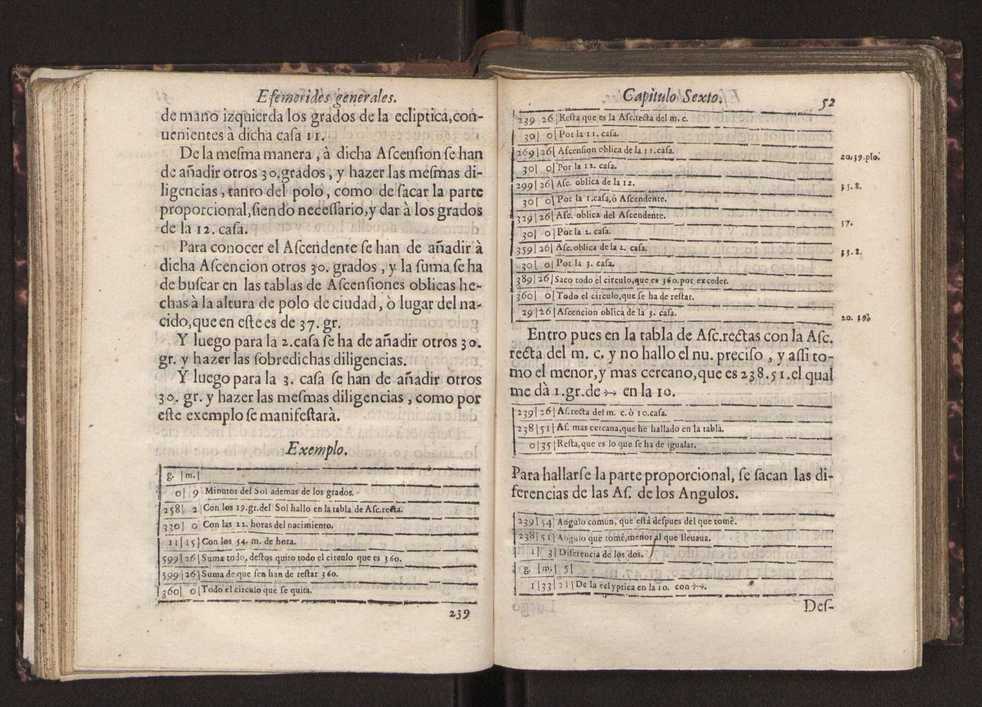 Efemerides generales.
de mano izquierda los grados de la ecliptica,con-
uenientes à dicha casa 11.
De la mesma manera , à dicha Ascension se han
de añadir otros 30.grados , y hazer las mesmas di-
ligencias , tanto del polo , como de sacar la parte
proporcional,siendo necessario,y dar à los grados
de la 12. casa.
Para conocer el Ascendente se han de añadir à
dicha Ascencion otros 30. grados , y la suma se ha
de buscar en las tablas de Ascensiones oblicas he-
chas à la altura de polo de ciudad, ò lugar del na-
cido,que en este es de 37. gr.
Y luego para la 2.casa se ha de añadir otros 30.
gr. y hazer las sobredichas diligencias.
Y luego para la 3. casa se han de añadir otros
30. gr. y hazer las mesmas diligencias , como por
este exemplo se manifestarà.
Exemplo.
g. |m.|
0| 9 Minutos del Sol ademas de los grados.
258| 2 Con los 19.gr.del Sol hallo en la tabla de Asc.recta.
330| 0 Con las 22. horas del nacimiento.
11|15|Con los 54. m. de hora.
599|26|Suma todo, destos quito todo el circulo que es 360.
599|26|Suma de que sen han de restar 360.
360| 0|Todo el circulo que se quita.
239
Capitulo Sexto. 52
239 26|Resta que es la Asc.recta del m. c.
30| 0|Por la 11. casa.
269|26|Ascension oblica de la 11.casa. 20.39.plo.
30| 0|Por la 12. casa.
299|26|Asc. oblica de la 12. 33.8.
30| 0|Por la 1.casa,ò Ascendente.
329|26|Asc. oblica del Ascendente. 37.
30| 0|Por la 2. casa.
359|26|Asc.oblica de la 2. casa. 33.8.
30| 0|Por la 3. casa.
389|26|Saco todo el circulo,que es 360.por exceder.
360| 0|Todo el circulo,que se ha de restar.
29|26|Ascencion oblica de la 3. casa. 20. 39.
Entro pues en la tabla de Asc.rectas con la Asc.
recta del m. c. y no hallo el nu. preciso , y assi to-
mo el menor,y mas cercano,que es 238.51.el qual
me dà 1.gr.de ♐ en la 10.
239|26|As.recta del m. c. ò 10.casa.
238|51|As. mas cercana,que he hallado en la tabla.
0|35|Resta,que es lo que se ha de igualar.
Para hallarse la parte proporcional, se sacan las di-
ferencias de las As. de los Angulos.
239|54|Angulo comun, que està despues del que tomè.
238|51|Angulo que tomè,menor al que lleuaua.
1| 3|Diferencia de los dos.
g. |m.| S|
1|33|21|De la eclyptica en la 10. con ♐.
Des-